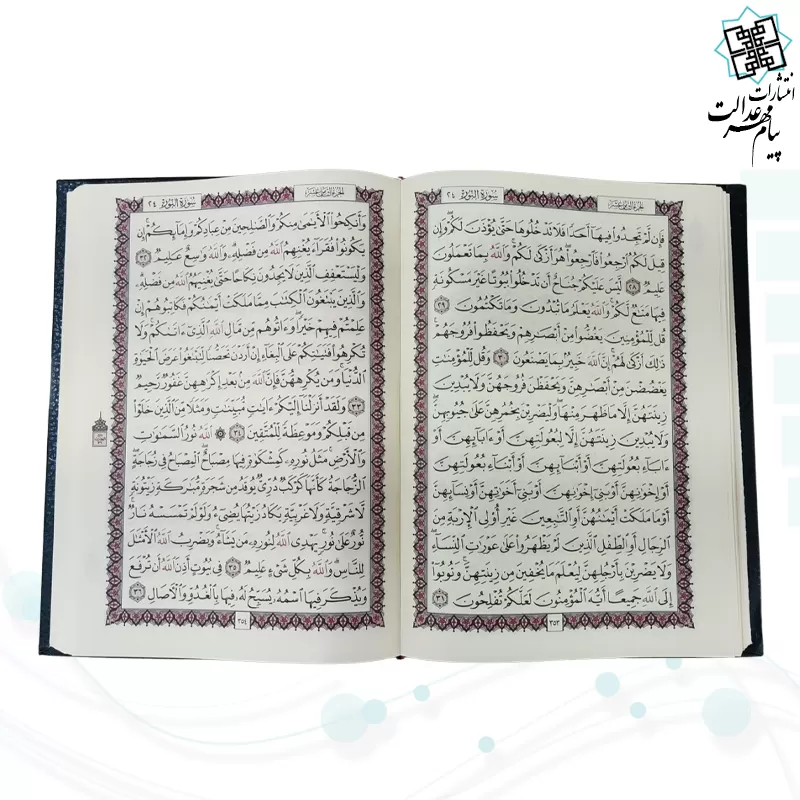 انتشارات
پیام مهر عدالت
الجزء الثامن عشر سورة النور ٢٤
فَإِن لَّمْ تَجِدُوا۟ فِيهَآ أَحَدًا فَلَا تَدْخُلُوهَا حَتَّىٰ يُؤْذَنَ لَكُمْ ۖ وَإِن
قِيلَ لَكُمُ ٱرْجِعُوا۟ فَٱرْجِعُوا۟ ۖ هُوَ أَزْكَىٰ لَكُمْ ۚ وَٱللَّهُ بِمَا تَعْمَلُونَ
عَلِيمٌ ٢٨ لَّيْسَ عَلَيْكُمْ جُنَاحٌ أَن تَدْخُلُوا۟ بُيُوتًا غَيْرَ مَسْكُونَةٍ
فِيهَا مَتَٰعٌ لَّكُمْ ۚ وَٱللَّهُ يَعْلَمُ مَا تُبْدُونَ وَمَا تَكْتُمُونَ ٢٩
قُل لِّلْمُؤْمِنِينَ يَغُضُّوا۟ مِنْ أَبْصَٰرِهِمْ وَيَحْفَظُوا۟ فُرُوجَهُمْ ۚ
ذَٰلِكَ أَزْكَىٰ لَهُمْ ۗ إِنَّ ٱللَّهَ خَبِيرٌۢ بِمَا يَصْنَعُونَ ٣٠ وَقُل لِّلْمُؤْمِنَٰتِ
يَغْضُضْنَ مِنْ أَبْصَٰرِهِنَّ وَيَحْفَظْنَ فُرُوجَهُنَّ وَلَا يُبْدِينَ
زِينَتَهُنَّ إِلَّا مَا ظَهَرَ مِنْهَا ۖ وَلْيَضْرِبْنَ بِخُمُرِهِنَّ عَلَىٰ جُيُوبِهِنَّ ۖ
وَلَا يُبْدِينَ زِينَتَهُنَّ إِلَّا لِبُعُولَتِهِنَّ أَوْ ءَابَآئِهِنَّ أَوْ
ءَابَآءِ بُعُولَتِهِنَّ أَوْ أَبْنَآئِهِنَّ أَوْ أَبْنَآءِ بُعُولَتِهِنَّ
أَوْ إِخْوَٰنِهِنَّ أَوْ بَنِىٓ إِخْوَٰنِهِنَّ أَوْ بَنِىٓ أَخَوَٰتِهِنَّ أَوْ نِسَآئِهِنَّ
أَوْ مَا مَلَكَتْ أَيْمَٰنُهُنَّ أَوِ ٱلتَّٰبِعِينَ غَيْرِ أُو۟لِى ٱلْإِرْبَةِ مِنَ
ٱلرِّجَالِ أَوِ ٱلطِّفْلِ ٱلَّذِينَ لَمْ يَظْهَرُوا۟ عَلَىٰ عَوْرَٰتِ ٱلنِّسَآءِ ۖ
وَلَا يَضْرِبْنَ بِأَرْجُلِهِنَّ لِيُعْلَمَ مَا يُخْفِينَ مِن زِينَتِهِنَّ ۚ وَتُوبُوٓا۟
إِلَى ٱللَّهِ جَمِيعًا أَيُّهَ ٱلْمُؤْمِنُونَ لَعَلَّكُمْ تُفْلِحُونَ ٣١
٣٥٣
الجزء الثامن عشر سورة النور ٢٤
وَأَنكِحُوا۟ ٱلْأَيَٰمَىٰ مِنكُمْ وَٱلصَّٰلِحِينَ مِنْ عِبَادِكُمْ وَإِمَآئِكُمْ ۚ إِن
يَكُونُوا۟ فُقَرَآءَ يُغْنِهِمُ ٱللَّهُ مِن فَضْلِهِۦ ۗ وَٱللَّهُ وَٰسِعٌ عَلِيمٌ ٣٢
وَلْيَسْتَعْفِفِ ٱلَّذِينَ لَا يَجِدُونَ نِكَاحًا حَتَّىٰ يُغْنِيَهُمُ ٱللَّهُ مِن فَضْلِهِۦ ۗ
وَٱلَّذِينَ يَبْتَغُونَ ٱلْكِتَٰبَ مِمَّا مَلَكَتْ أَيْمَٰنُكُمْ فَكَاتِبُوهُمْ إِنْ
عَلِمْتُمْ فِيهِمْ خَيْرًا ۖ وَءَاتُوهُم مِّن مَّالِ ٱللَّهِ ٱلَّذِىٓ ءَاتَىٰكُمْ ۚ وَلَا
تُكْرِهُوا۟ فَتَيَٰتِكُمْ عَلَى ٱلْبِغَآءِ إِنْ أَرَدْنَ تَحَصُّنًا لِّتَبْتَغُوا۟ عَرَضَ ٱلْحَيَوٰةِ
ٱلدُّنْيَا ۚ وَمَن يُكْرِههُّنَّ فَإِنَّ ٱللَّهَ مِنۢ بَعْدِ إِكْرَٰهِهِنَّ غَفُورٌ رَّحِيمٌ
٣٣ وَلَقَدْ أَنزَلْنَآ إِلَيْكُمْ ءَايَٰتٍ مُّبَيِّنَٰتٍ وَمَثَلًا مِّنَ ٱلَّذِينَ خَلَوْا۟
مِن قَبْلِكُمْ وَمَوْعِظَةً لِّلْمُتَّقِينَ ٣٤ ۞ ٱللَّهُ نُورُ ٱلسَّمَٰوَٰتِ
وَٱلْأَرْضِ ۚ مَثَلُ نُورِهِۦ كَمِشْكَوٰةٍ فِيهَا مِصْبَاحٌ ۖ ٱلْمِصْبَاحُ فِى زُجَاجَةٍ ۖ
ٱلزُّجَاجَةُ كَأَنَّهَا كَوْكَبٌ دُرِّىٌّ يُوقَدُ مِن شَجَرَةٍ مُّبَٰرَكَةٍ زَيْتُونَةٍ
لَّا شَرْقِيَّةٍ وَلَا غَرْبِيَّةٍ يَكَادُ زَيْتُهَا يُضِىٓءُ وَلَوْ لَمْ تَمْسَسْهُ نَارٌ ۚ
نُّورٌ عَلَىٰ نُورٍ ۗ يَهْدِى ٱللَّهُ لِنُورِهِۦ مَن يَشَآءُ ۚ وَيَضْرِبُ ٱللَّهُ ٱلْأَمْثَٰلَ
لِلنَّاسِ ۗ وَٱللَّهُ بِكُلِّ شَىْءٍ عَلِيمٌ ٣٥ فِى بُيُوتٍ أَذِنَ ٱللَّهُ أَن تُرْفَعَ
وَيُذْكَرَ فِيهَا ٱسْمُهُۥ يُسَبِّحُ لَهُۥ فِيهَا بِٱلْغُدُوِّ وَٱلْءَاصَالِ ٣٦
٣٥٤